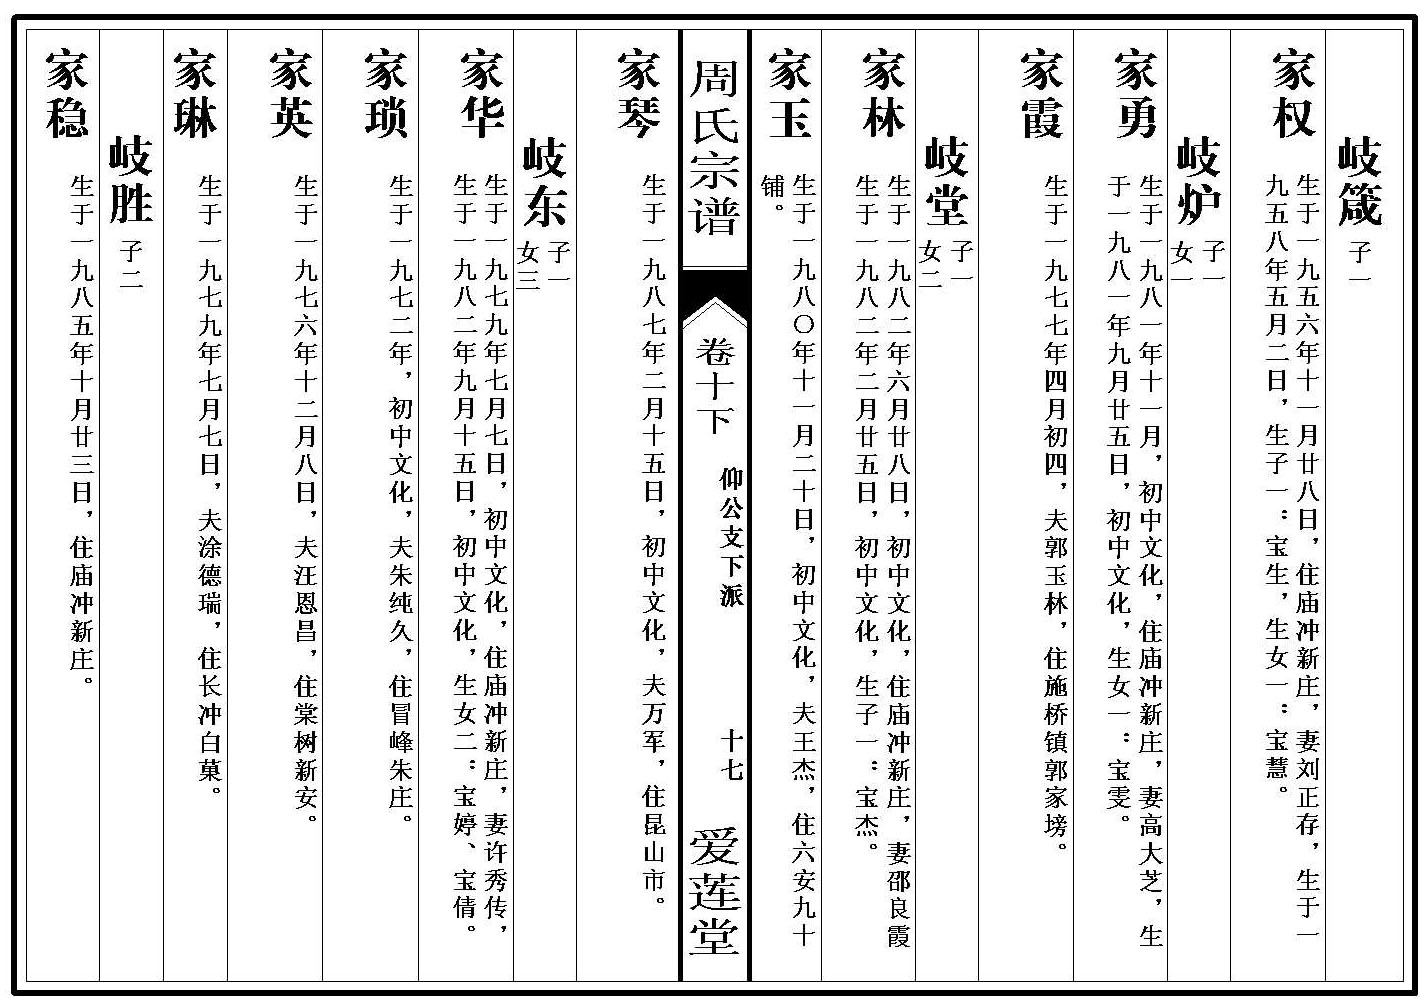 岐箴
子一
家权
生于一九五六年十一月廿八日，住庙冲新庄，妻刘正存，生于一
九五八年五月二日，生子一：宝生，生女一：宝慧。
岐炉
子一
女一
家勇
生于一九八一年十一月，初中文化，住庙冲新庄，妻高大芝，生
于一九八一年九月廿五日，初中文化，生女一：宝雯。
家霞
生于一九七七年四月初四，夫郭玉林，住施桥镇郭家塝。
岐堂
子一
女二
家林
生于一九八二年六月廿八日，初中文化，住庙冲新庄，妻邵良霞
生于一九八二年二月廿五日，初中文化，生子一：宝杰。
家玉
生于一九八〇年十一月二十日，初中文化，夫王杰，住六安九十
铺。
周氏宗谱
卷十下
仰公支下派
十七
爱莲堂
家琴
生于一九八七年二月十五日，初中文化，夫万军，住昆山市。
岐东
子一
女三
家华
生于一九七九年七月七日，初中文化，住庙冲新庄，妻许秀传，
生于一九八二年九月十五日，初中文化，生女二：宝婷、宝倩。
家琐
生于一九七二年，初中文化，夫朱纯久，住冒峰朱庄。
家英
生于一九七六年十二月八日，夫汪恩昌，住棠树新安。
家琳
生于一九七九年七月七日，夫涂德瑞，住长冲白菓。
岐胜
子二
家稳
生于一九八五年十月廿三日，住庙冲新庄。